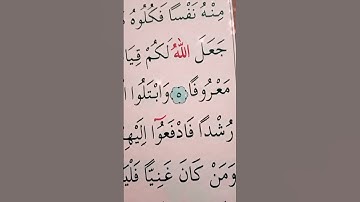 مِنْهُ نَفْسًا فَكُلُوهُ
جَعَلَ اللّٰهُ لَكُمْ
مَعْرُوفًا ﴿٥﴾ وَابْتَلُوا
رُشْدًا فَادْفَعُوٓا
وَمَنْ كَانَ غَنِيًّا